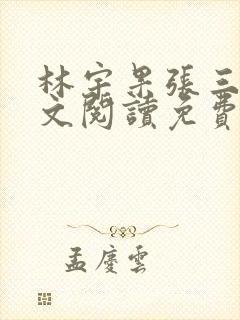 林宇杲張三
文閱讀免費
孟慶雲